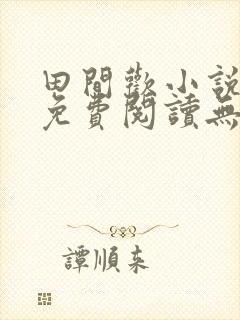 田間歡小說
免費閱讀無
譚順來